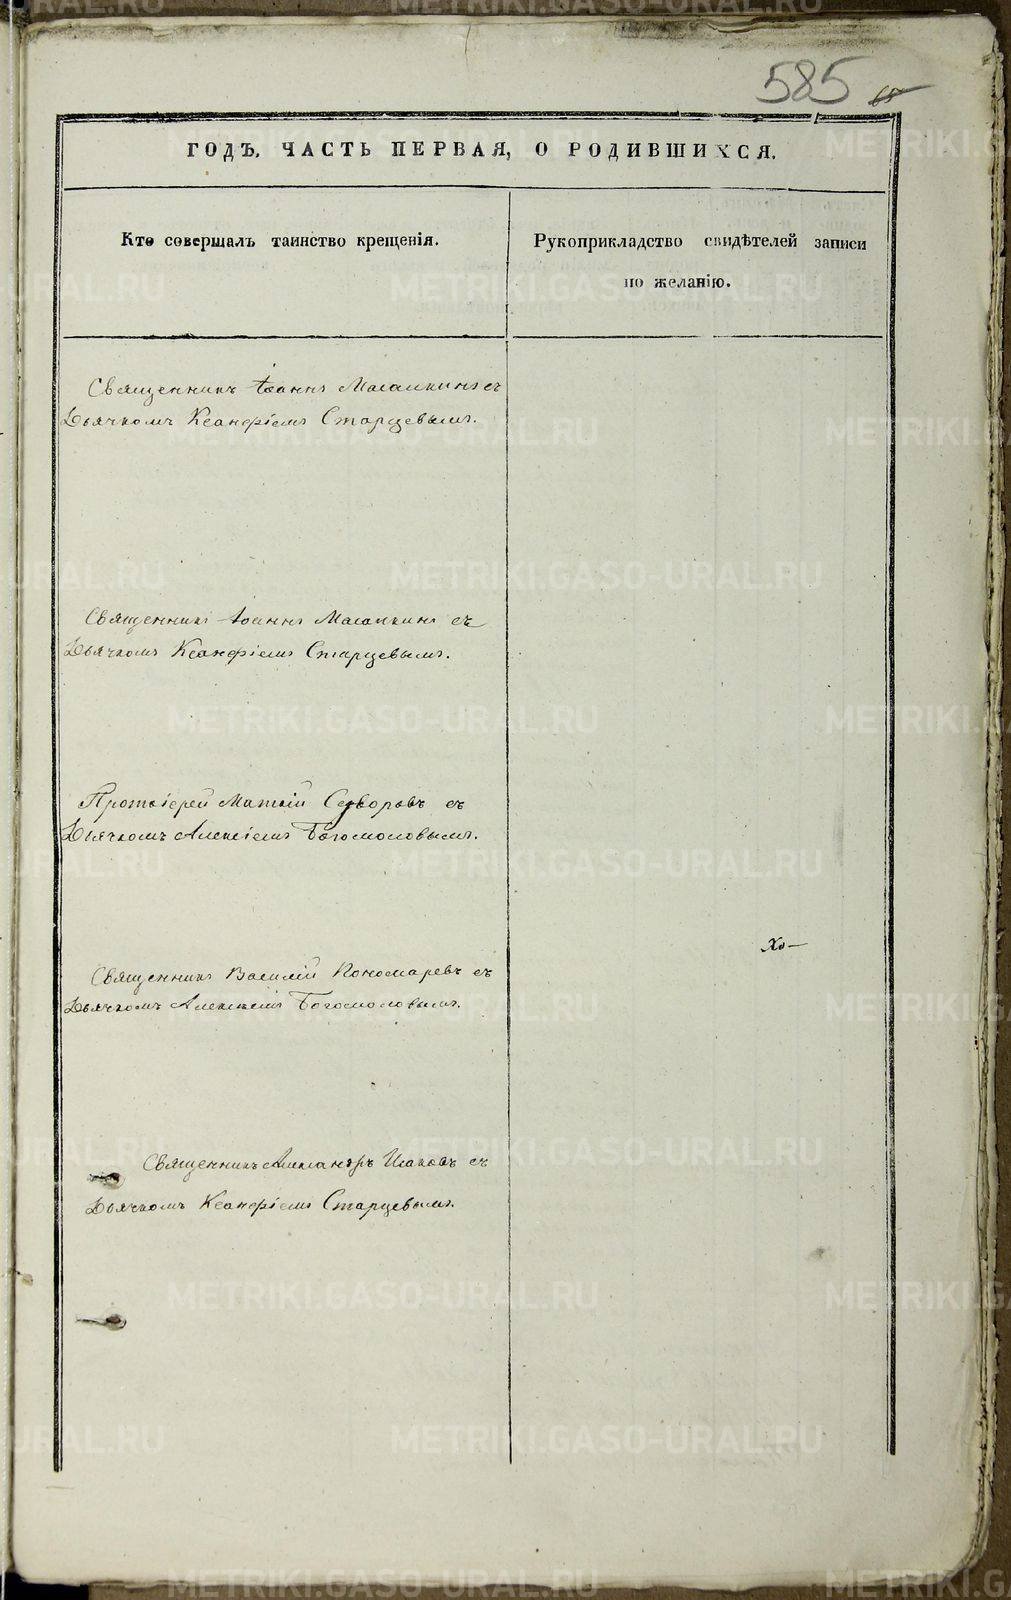 585 65
ГОДЪ, ЧАСТЬ ПЕРВАЯ, О РОДИВШИХСЯ.
Кто совершалъ таинство крещенія.
Рукоприкладство свидѣтелей записи
по желанію.
Священникъ Іоаннъ Масалкинъ съ
Дьячкомъ Ксанфіемъ Старцевымъ.
Священникъ Іоаннъ Масалкинъ съ
Дьячкомъ Ксанфіемъ Старцевымъ.
Протоіерей Матѳій Суворовъ съ
Дьячкомъ Алексіемъ Богомоловымъ.
Священникъ Василій Пономаревъ съ
Дьячкомъ Алексіемъ Богомоловымъ.
Хо—
Священникъ Александръ Исаковъ съ
Дьячкомъ Ксанфіемъ Старцевымъ.
METRIKI.GASO-URAL.RU